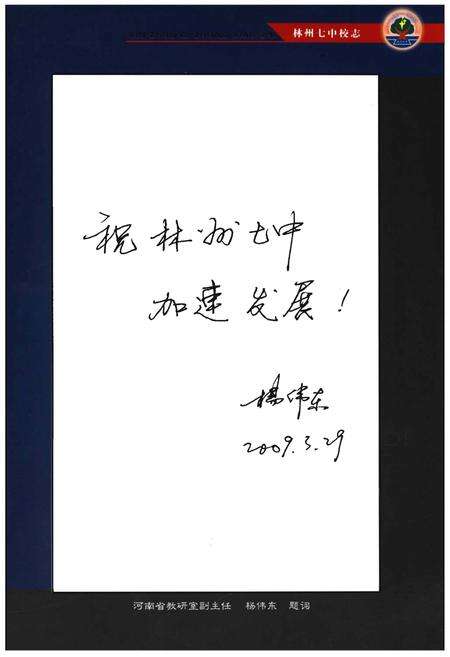 林州七中校志
祝林州七中
加速发展！
杨伟东
2009.3.29
河南省教研室副主任 杨伟东 题词